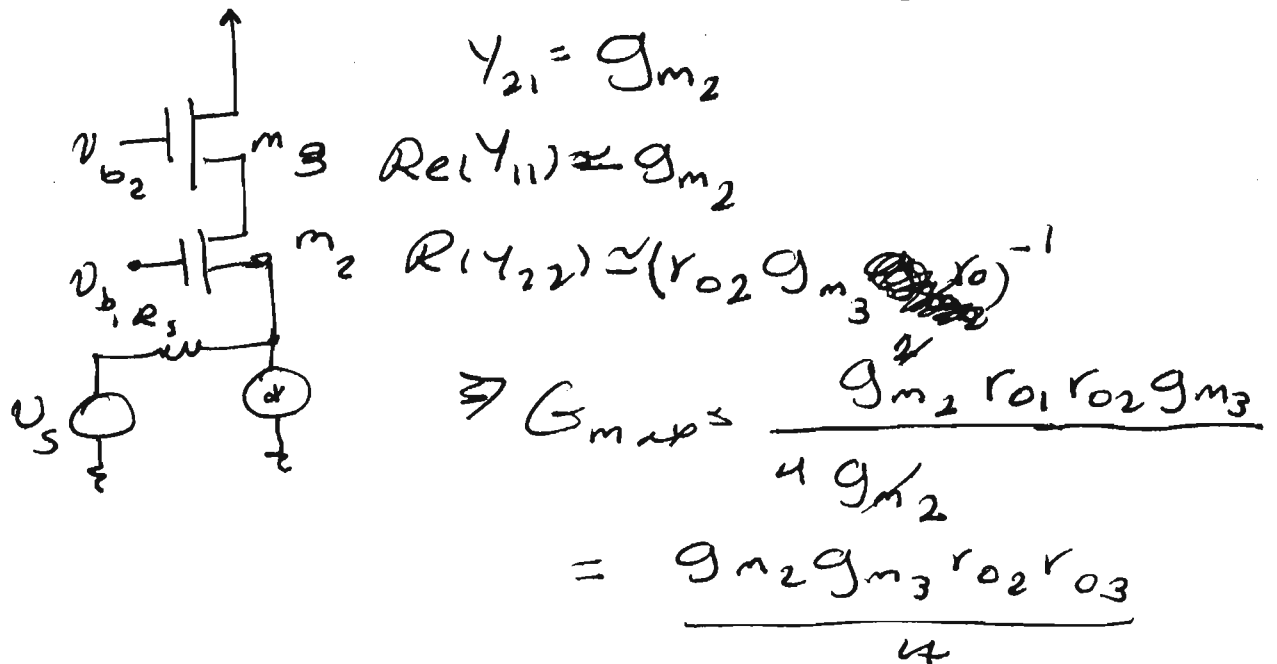 Y₂₁ = g_m₂
v_b₂ m₃ Re(Y₁₁) ≃ g_m₂
v_b₁ m₂ R(Y₂₂) ≃ (r_o₂ g_m₃ r_o)⁻¹
R_s
v_s ⇒ G_max = g_m₂² r_o₁ r_o₂ g_m₃ / 4 g_m₂
= g_m₂ g_m₃ r_o₂ r_o₃ / 4